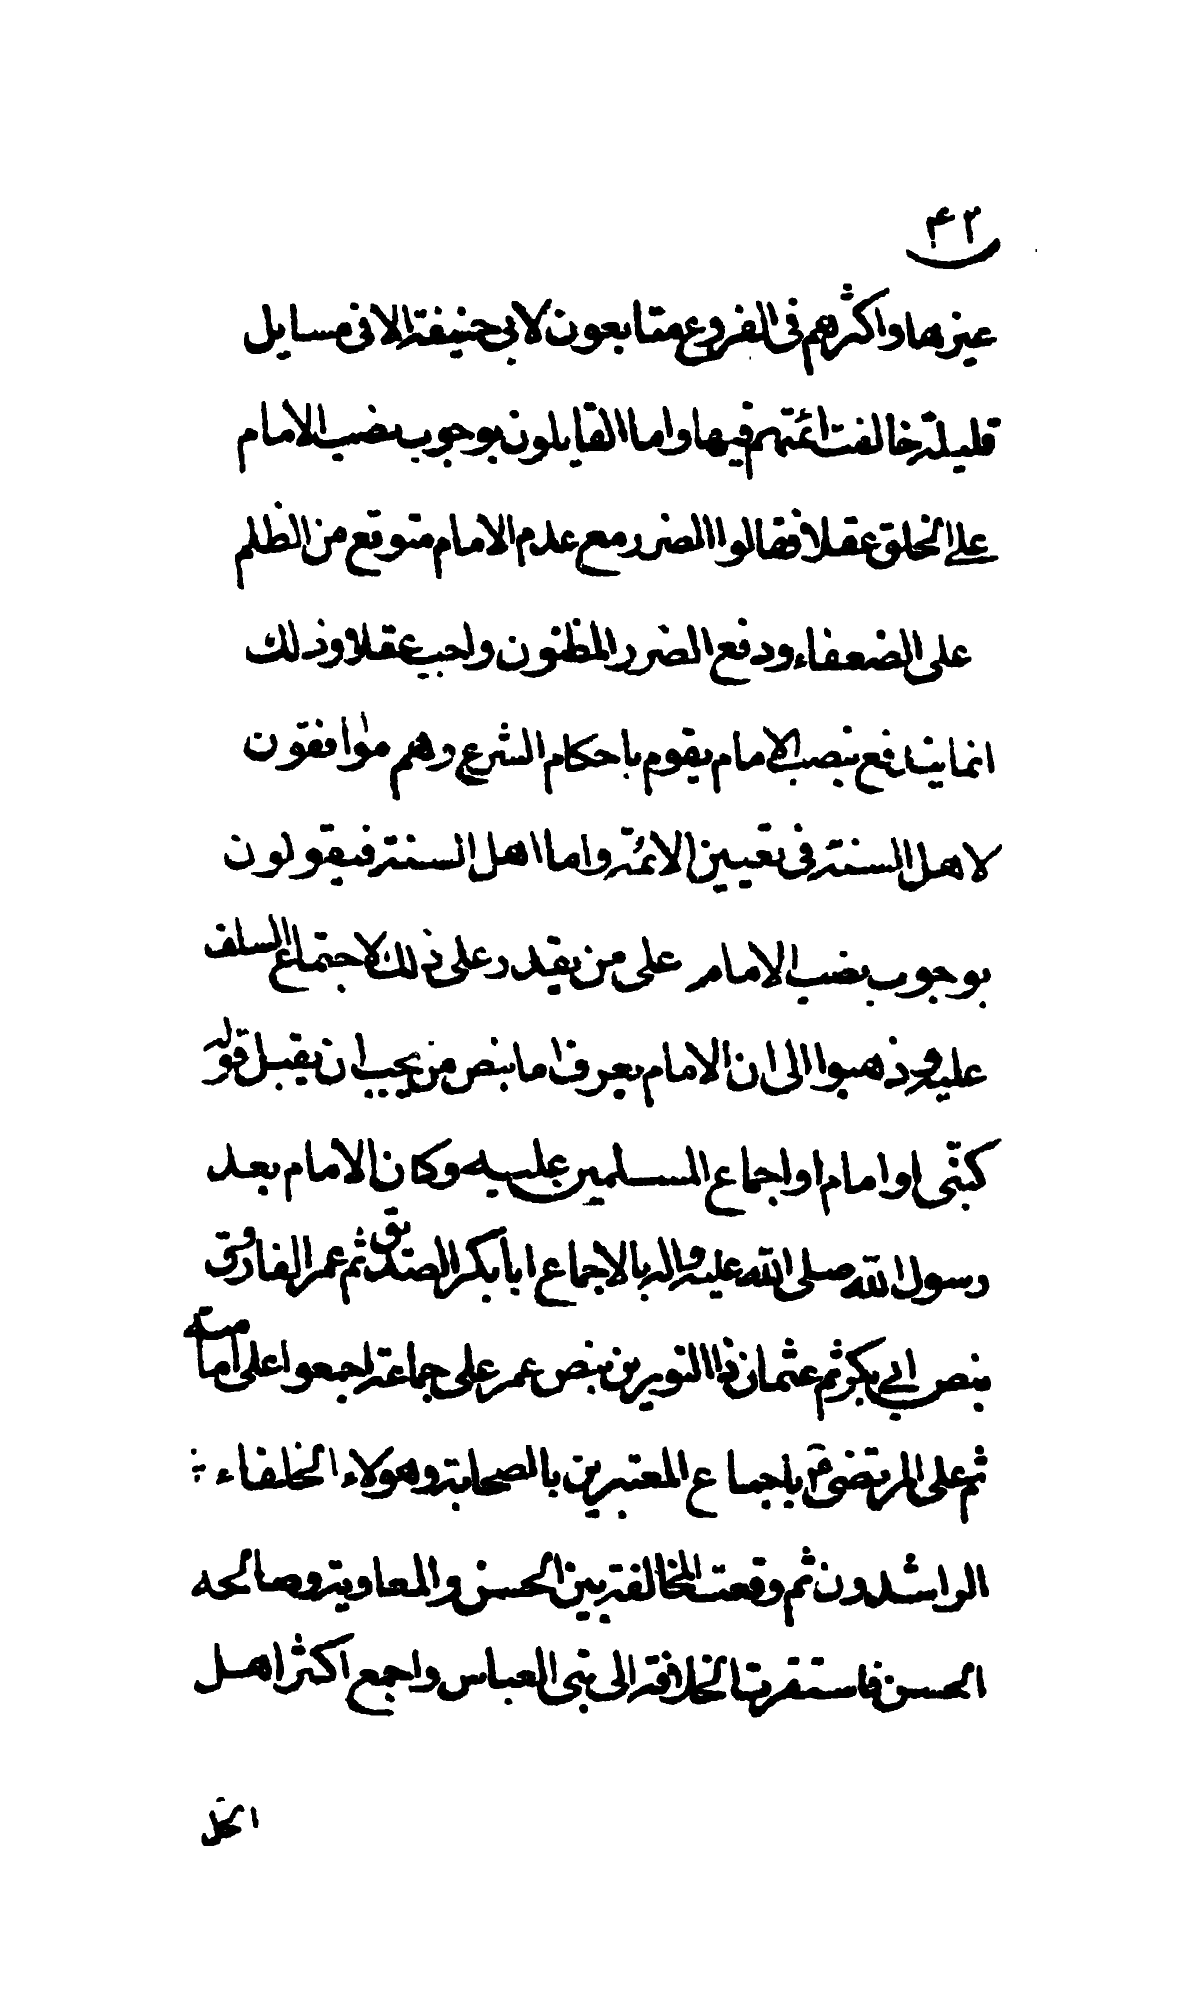 ۴۲
غيرها واكثرهم فى الفروع متابعون لابى حنيفة الا فى مسايل
قليلة خالفت ائمتهم فيها واما القايلون بوجوب نصب الامام
على الخلق عقلا فقالوا الضرر مع عدم الامام متوقع من الظلم
على الضعفاء ودفع الضرر المظنون واجب عقلا وذلك
انما يندفع بنصب الامام يقوم باحكام الشرع وهم موافقون
لاهل السنة فى تعيين الائمة واما اهل السنة فيقولون
بوجوب نصب الامام على من يقدر على ذلك لاجتماع السلف
عليه وذهبوا الى ان الامام يعرف اما بنص من يجب ان يقبل قوله
كنبّى او امام او اجماع المسلمين عليه وكان الامام بعد
رسول الله صلى الله عليه واله بالاجماع ابا بكر الصديق ثم عمر الفاروق
بنص ابى بكر ثم عثمان ذا النورين بنص عمر على جماعة اجمعوا على امامته
ثم على المرتضى باجماع المعتبرين بالصحابة وهولاء الخلفاء
الراشدون ثم وقعت المخالفة بين الحسن والمعاوية وصالحه
الحسن فاستقرت الخلافة الى بنى العباس واجمع اكثر اهل
الحل